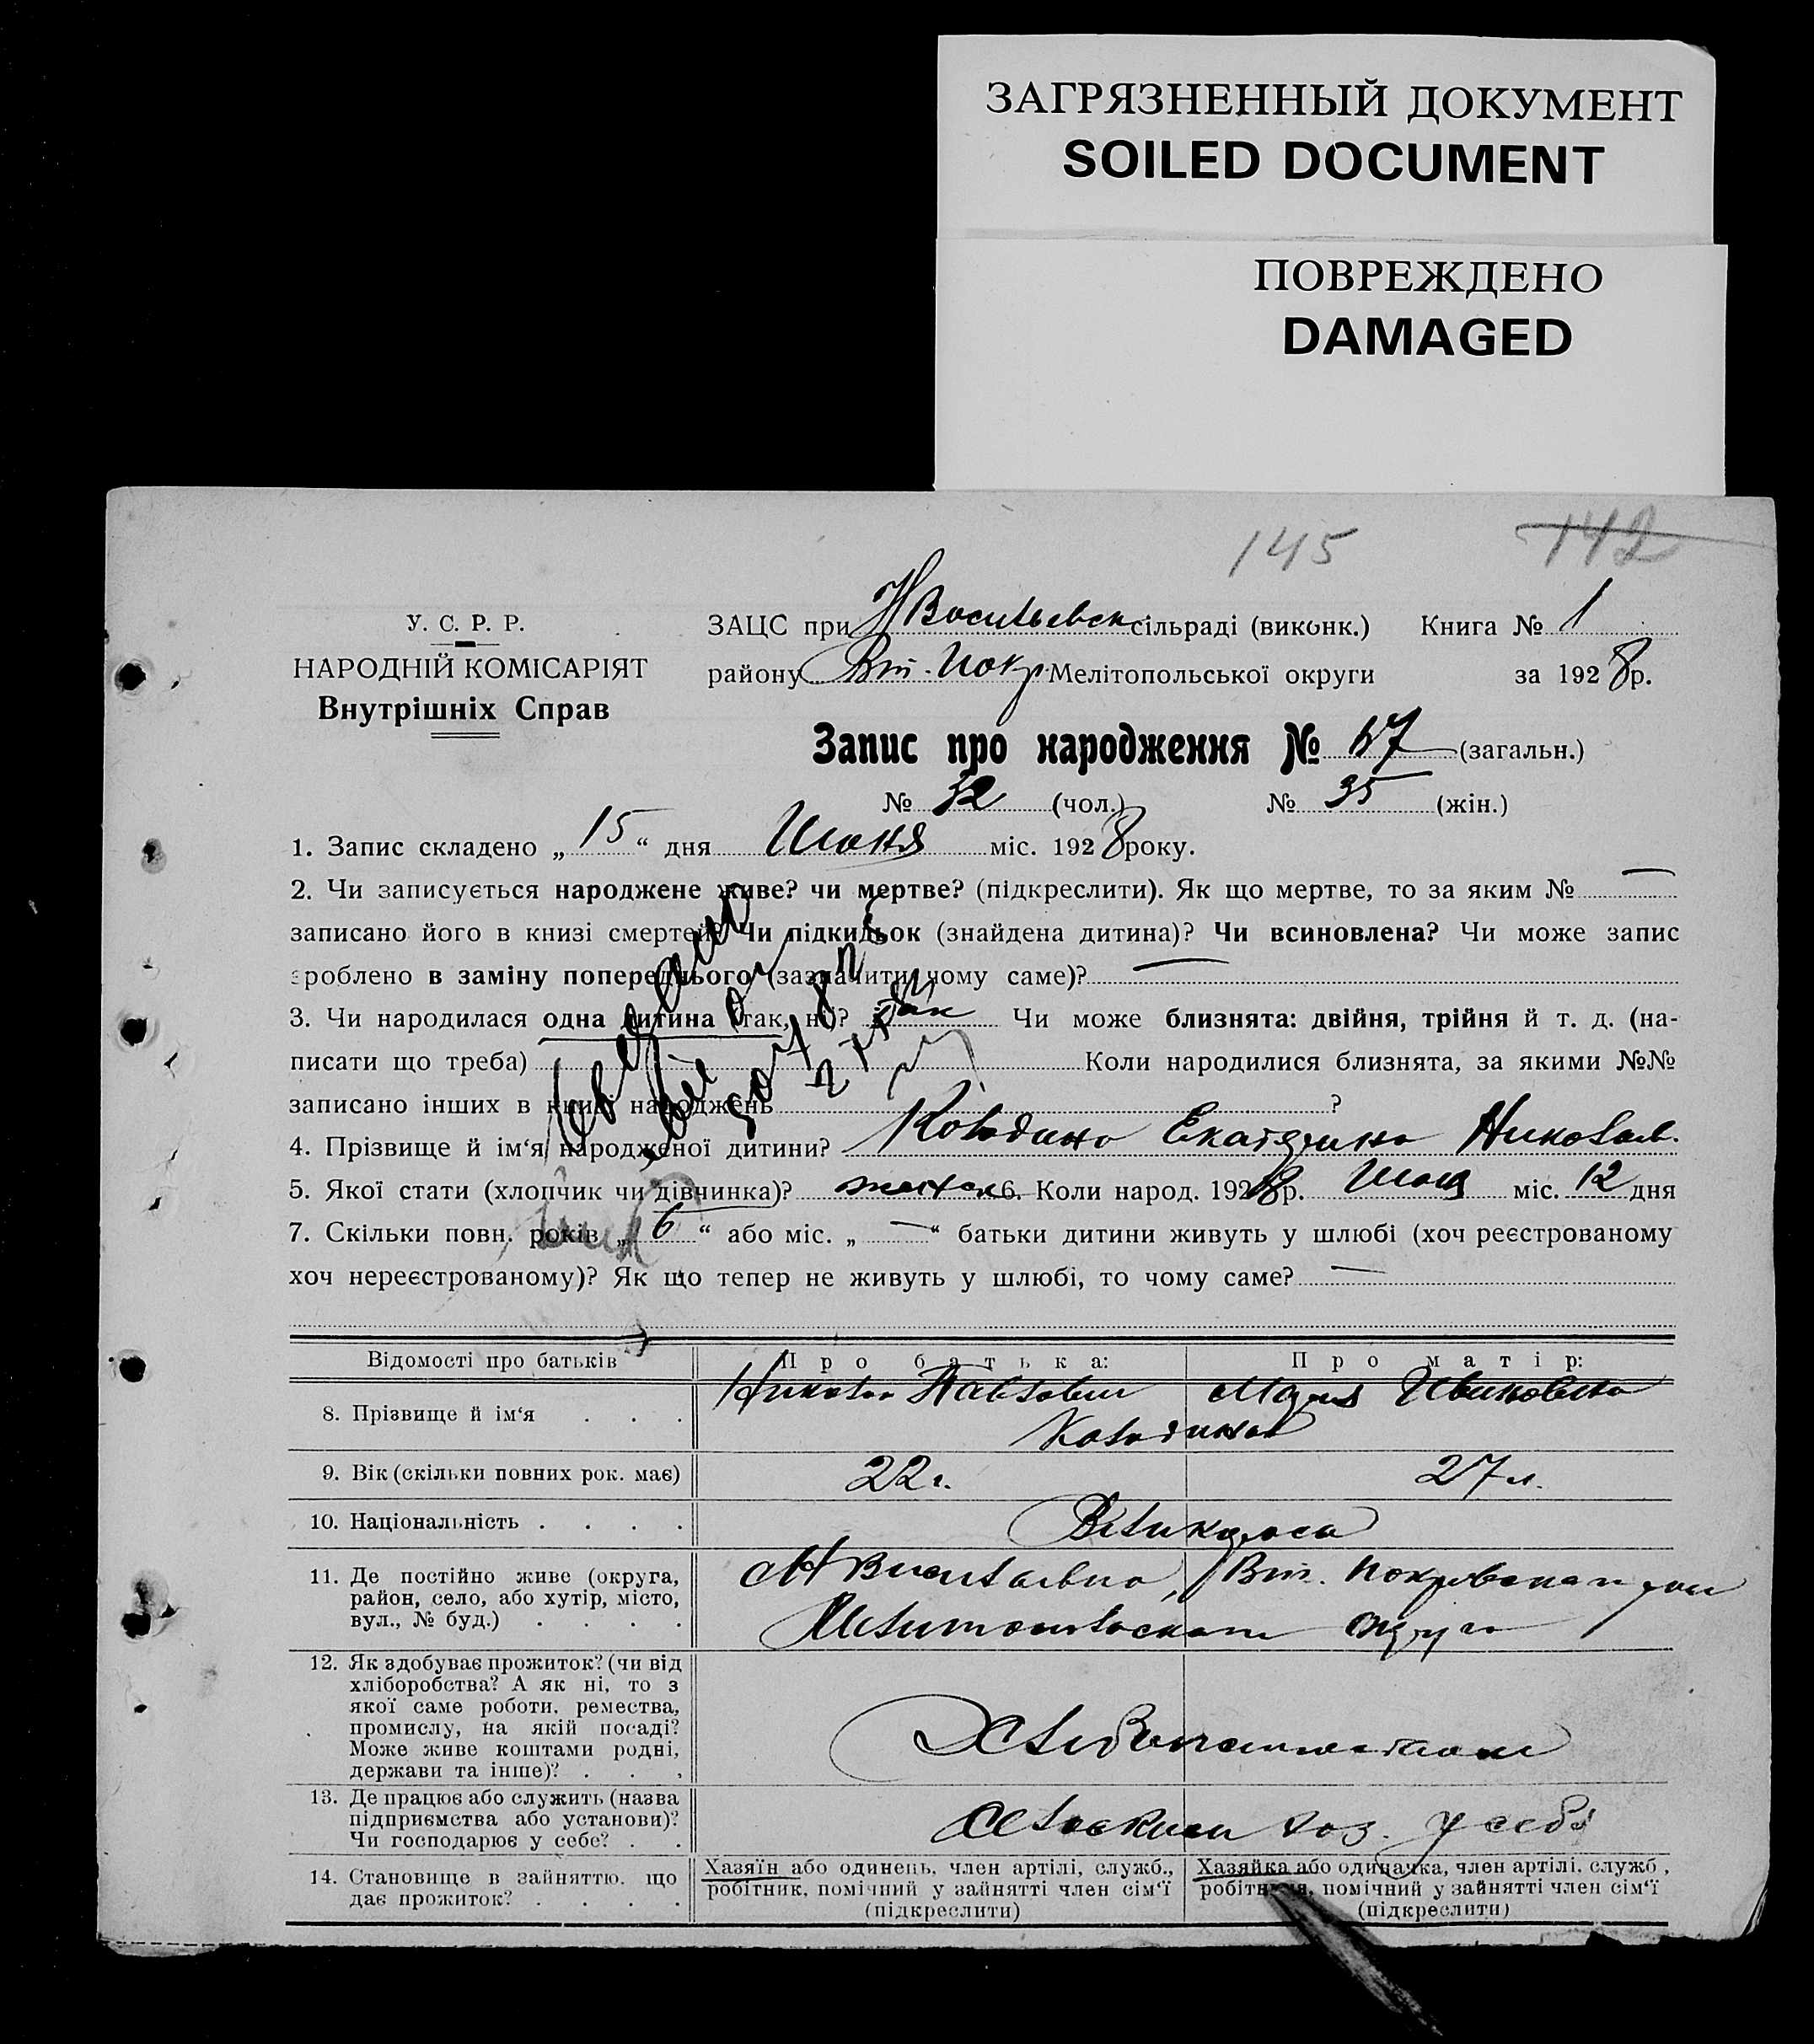 ЗАГРЯЗНЕННЫЙ ДОКУМЕНТ
SOILED DOCUMENT
ПОВРЕЖДЕНО
DAMAGED
145 142
У. С. Р. Р.
НАРОДНІЙ КОМІСАРІЯТ
Внутрішніх Справ
ЗАЦС при сільраді (виконк.) Книга № 1
району Вт. Покр. Мелітопольської округи за 1928р.
Запис про народження № 67 (загальн.)
№ 32 (чол.) № 35 (жін.)
1. Запис складено „ 15 “ дня Июня міс. 1928 року.
2. Чи записується народжене живе? чи мертве? (підкреслити). Як що мертве, то за яким № —
записано його в книзі смертей? Чи підкидьок (знайдена дитина)? Чи всиновлена? Чи може запис
зроблено в заміну попереднього (зазначити чому саме)? —
3. Чи народилася одна дитина (так, ні)? так Чи може близнята: двійня, трійня й т. д. (на-
писати що треба) Коли народилися близнята, за якими №№
записано інших в книзі народжень ?
4. Прізвище й ім‘я народженої дитини? Колодина Екатерина Николаев.
5. Якої стати (хлопчик чи дівчинка)? 6. Коли народ. 1928р. Июня міс. 12 дня
7. Скільки повн. років „ 6 “ або міс. „ — “ батьки дитини живуть у шлюбі (хоч реєстрованому
хоч нереєстрованому)? Як що тепер не живуть у шлюбі, то чому саме? —
Відомості про батьків Про батька: Про матір:
8. Прізвище й ім‘я . . . Николай Павлович Мария Ивановна
Колодины
9. Вік (скільки повних рок. має) 22 г. 27 л.
10. Національність . . . . Великоросы
11. Де постійно живе (округа,
район, село, або хутір, місто,
вул., № буд.) . . . .
Вт. Покровского
Мелитопольского округа
12. Як здобуває прожиток? (чи від
хліборобства? А як ні, то з
якої саме роботи, ремества,
промислу, на якій посаді?
Може живе коштами родні,
держави та інше)? . . .
Хлебопашеством
13. Де працює або служить (назва
підприємства або установи)?
Чи господарює у себе? . .
Сельским хоз. у себя
14. Становище в зайняттю, що
дає прожиток? . . . .
Хазяїн або одинець, член артілі, служб.,
робітник, помічний у зайнятті член сім‘ї
(підкреслити)
Хазяйка або одиначка, член артілі, служб.,
робітниця, помічний у зайнятті член сім‘ї
(підкреслити)